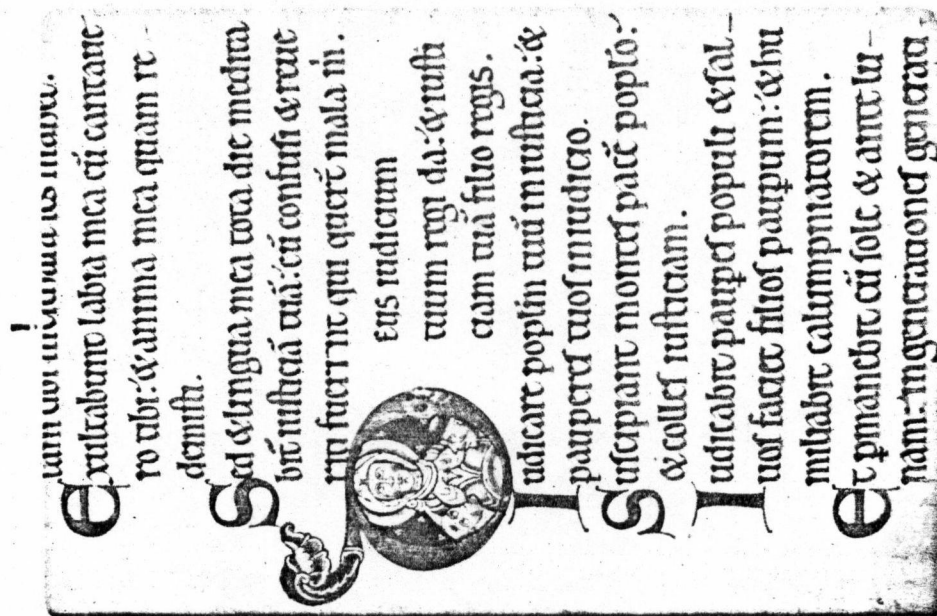 lam tibi
Exultabunt labia mea cū cantaue
ro tibi: & anima mea quam re-
demisti.
Sed & lingua mea tota die medita
bit̄ iusticiā tuā: cū confusi & reue
riti fuerint qui querūt mala m̄.
Deus iudicium
tuum regi da: & iusti
ciam tuā filio regis.
Iudicare poplm̄ tuū in iusticia: &
pauperes tuos in iudicio.
Suscipiant montes pacē poplo:
& colles iusticiam.
Iudicabit paup̲es populi & sal-
uos faciet filios paup̲um: & hu
miliabit calumpniatorem.
Et p̲manebit cū sole & ante lu-
nam: in generationes